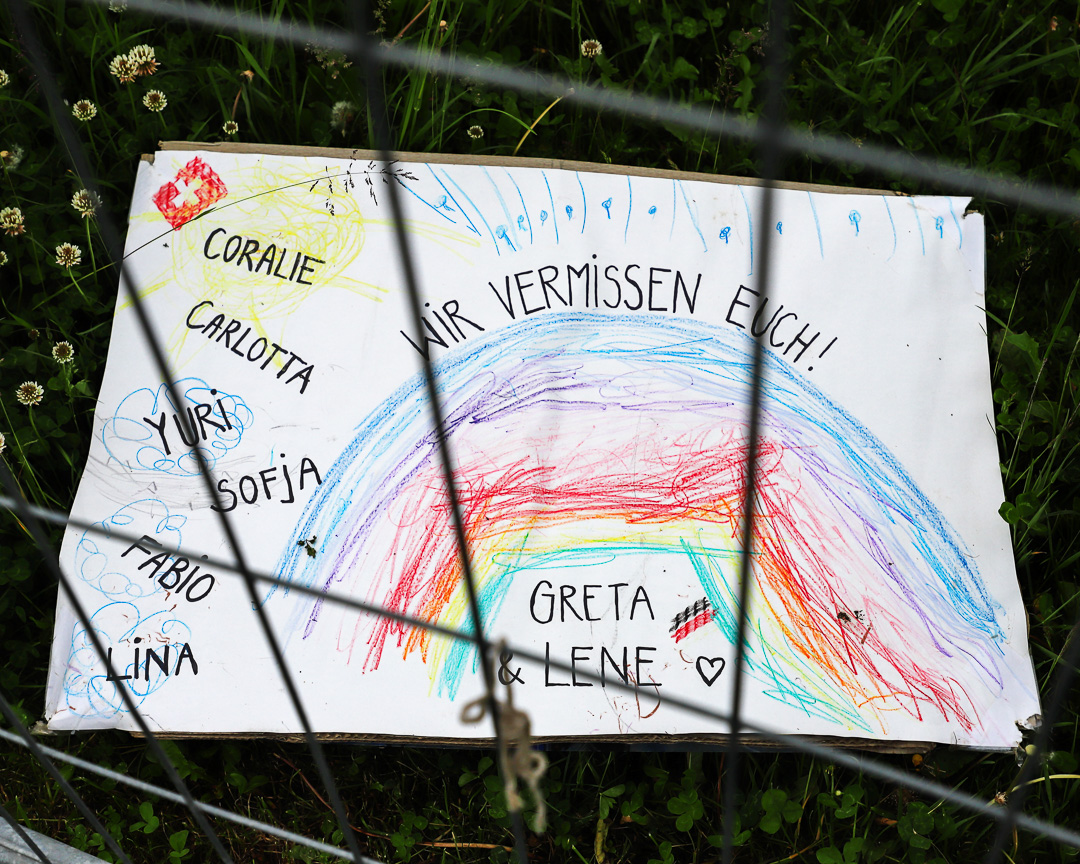 CORALIE
CARLOTTA
YURi
SOFjA
FABiO
LiNA
WiR VERMiSSEN EUCH!
GRETA
& LENE ♡